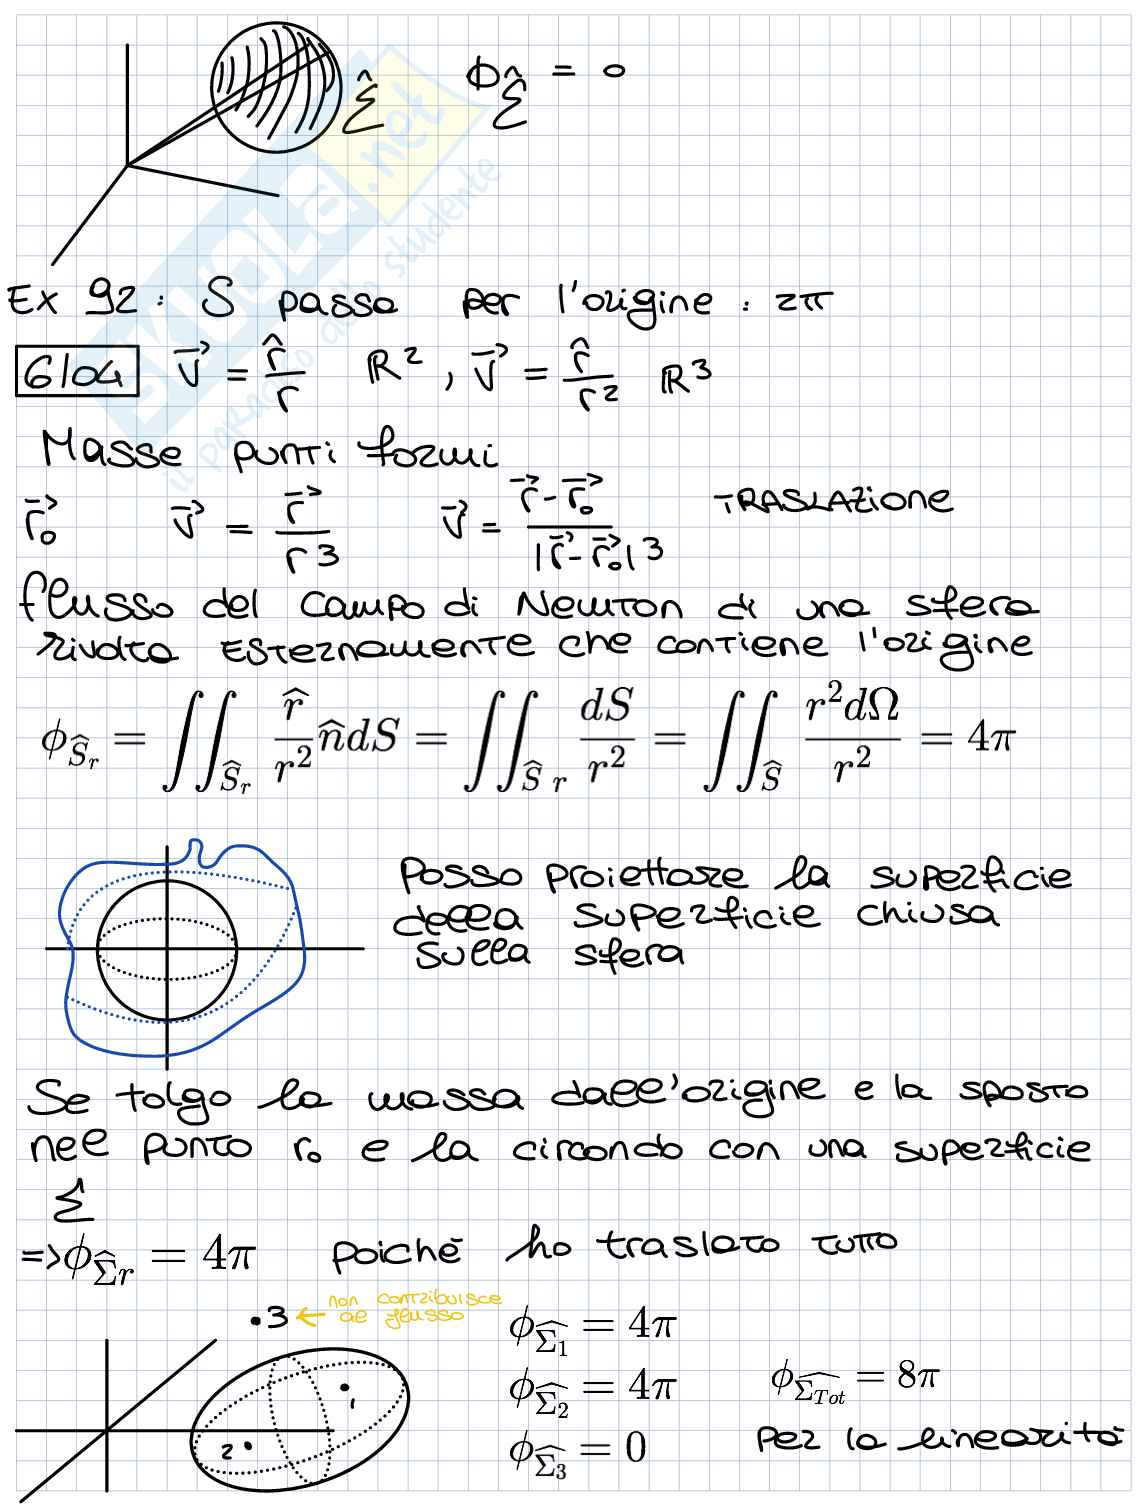 Σ̂ ϕ_Σ̂ = 0
Ex 92: S passa per l'origine: 2π
6/04 v⃗ = r̂/r ℝ², v⃗ = r̂/r² ℝ³
Masse puntiformi
r⃗₀ v⃗ = r⃗/r³ v⃗ = (r⃗-r⃗₀)/|r⃗-r⃗₀|³ TRASLAZIONE
flusso del campo di Newton di una sfera
rivolta ESTERNAMENTE che contiene l'origine
ϕ_Ŝr = ∬_Ŝr r̂/r² n̂dS = ∬_Ŝ r dS/r² = ∬_Ŝ r²dΩ/r² = 4π
Posso proiettare la superficie
della superficie chiusa
sulla sfera
Se tolgo la massa dall'origine e la sposto
nel punto r₀ e la circondo con una superficie
Σ
=> ϕ_Σ̂r = 4π poiché ho traslato tutto
.3 ← non contribuisce
al flusso
1
2
ϕ_Σ̂₁ = 4π
ϕ_Σ̂₂ = 4π
ϕ_Σ̂₃ = 0
ϕ_Σ̂Tot = 8π
Per la linearità
SKUOLA.net
il paradiso dello studente